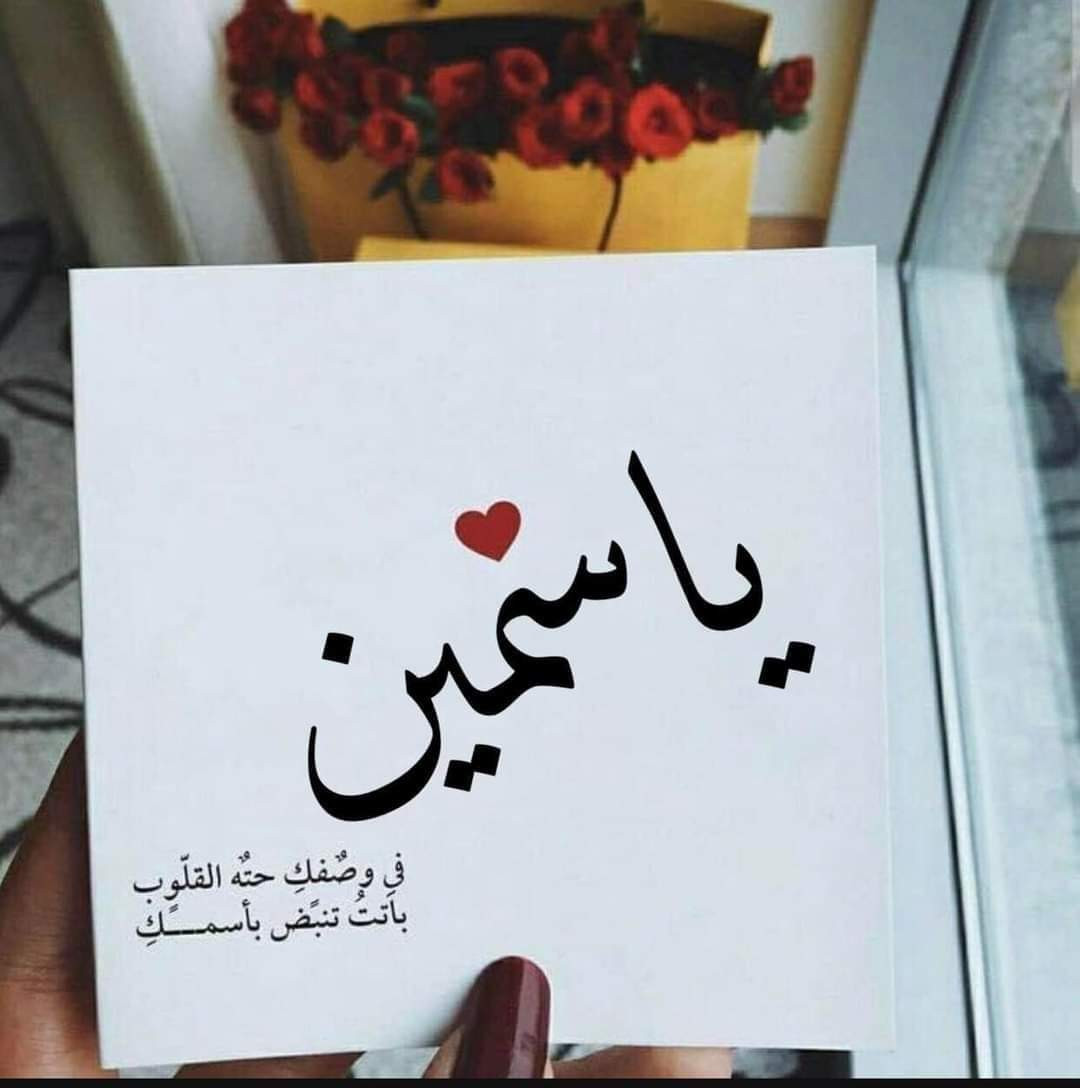 ياسمين
في وصٌفكِ حتهٌ القلّوب
باتتُ تنبًض بأسمـــكًِ